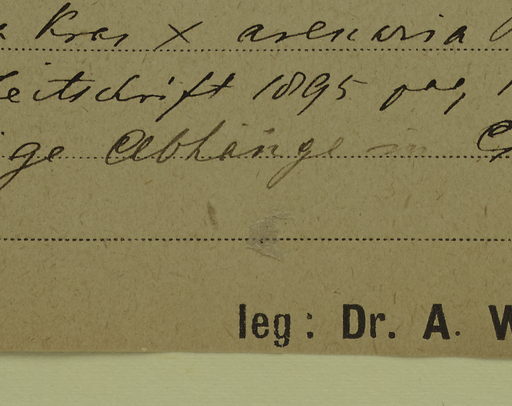 Kras × arenaria
eitschrift 1895 pag,
ige Abhänge in
leg: Dr. A. W